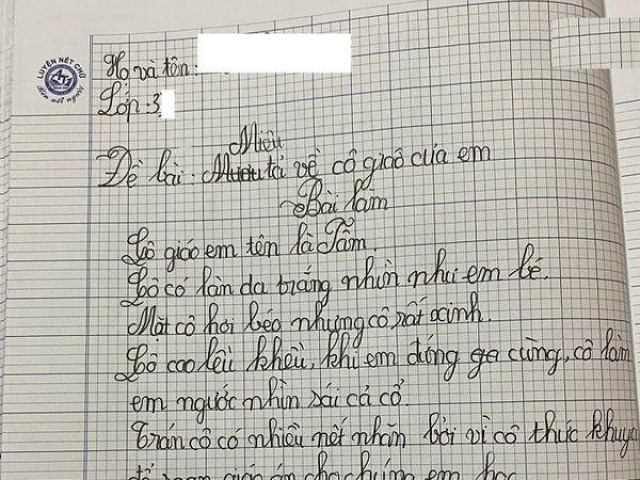 LUYỆN NÉT CHỮ
Rèn nết người
Họ và tên:
Lớp: 3
Miêu
Đề bài: tả về cô giáo của em
Bài làm
Cô giáo em tên là Tâm.
Cô có làn da trắng nhìn như em bé.
Mặt cô hơi béo nhưng cô rất xinh.
Cô cao lêu khêu, khi em đứng gần cùng, cô làm
em ngước nhìn sái cả cổ.
Trán cô có nhiều nết nhăn bởi vì cô thức khuya
để soạn giáo án cho chúng em học